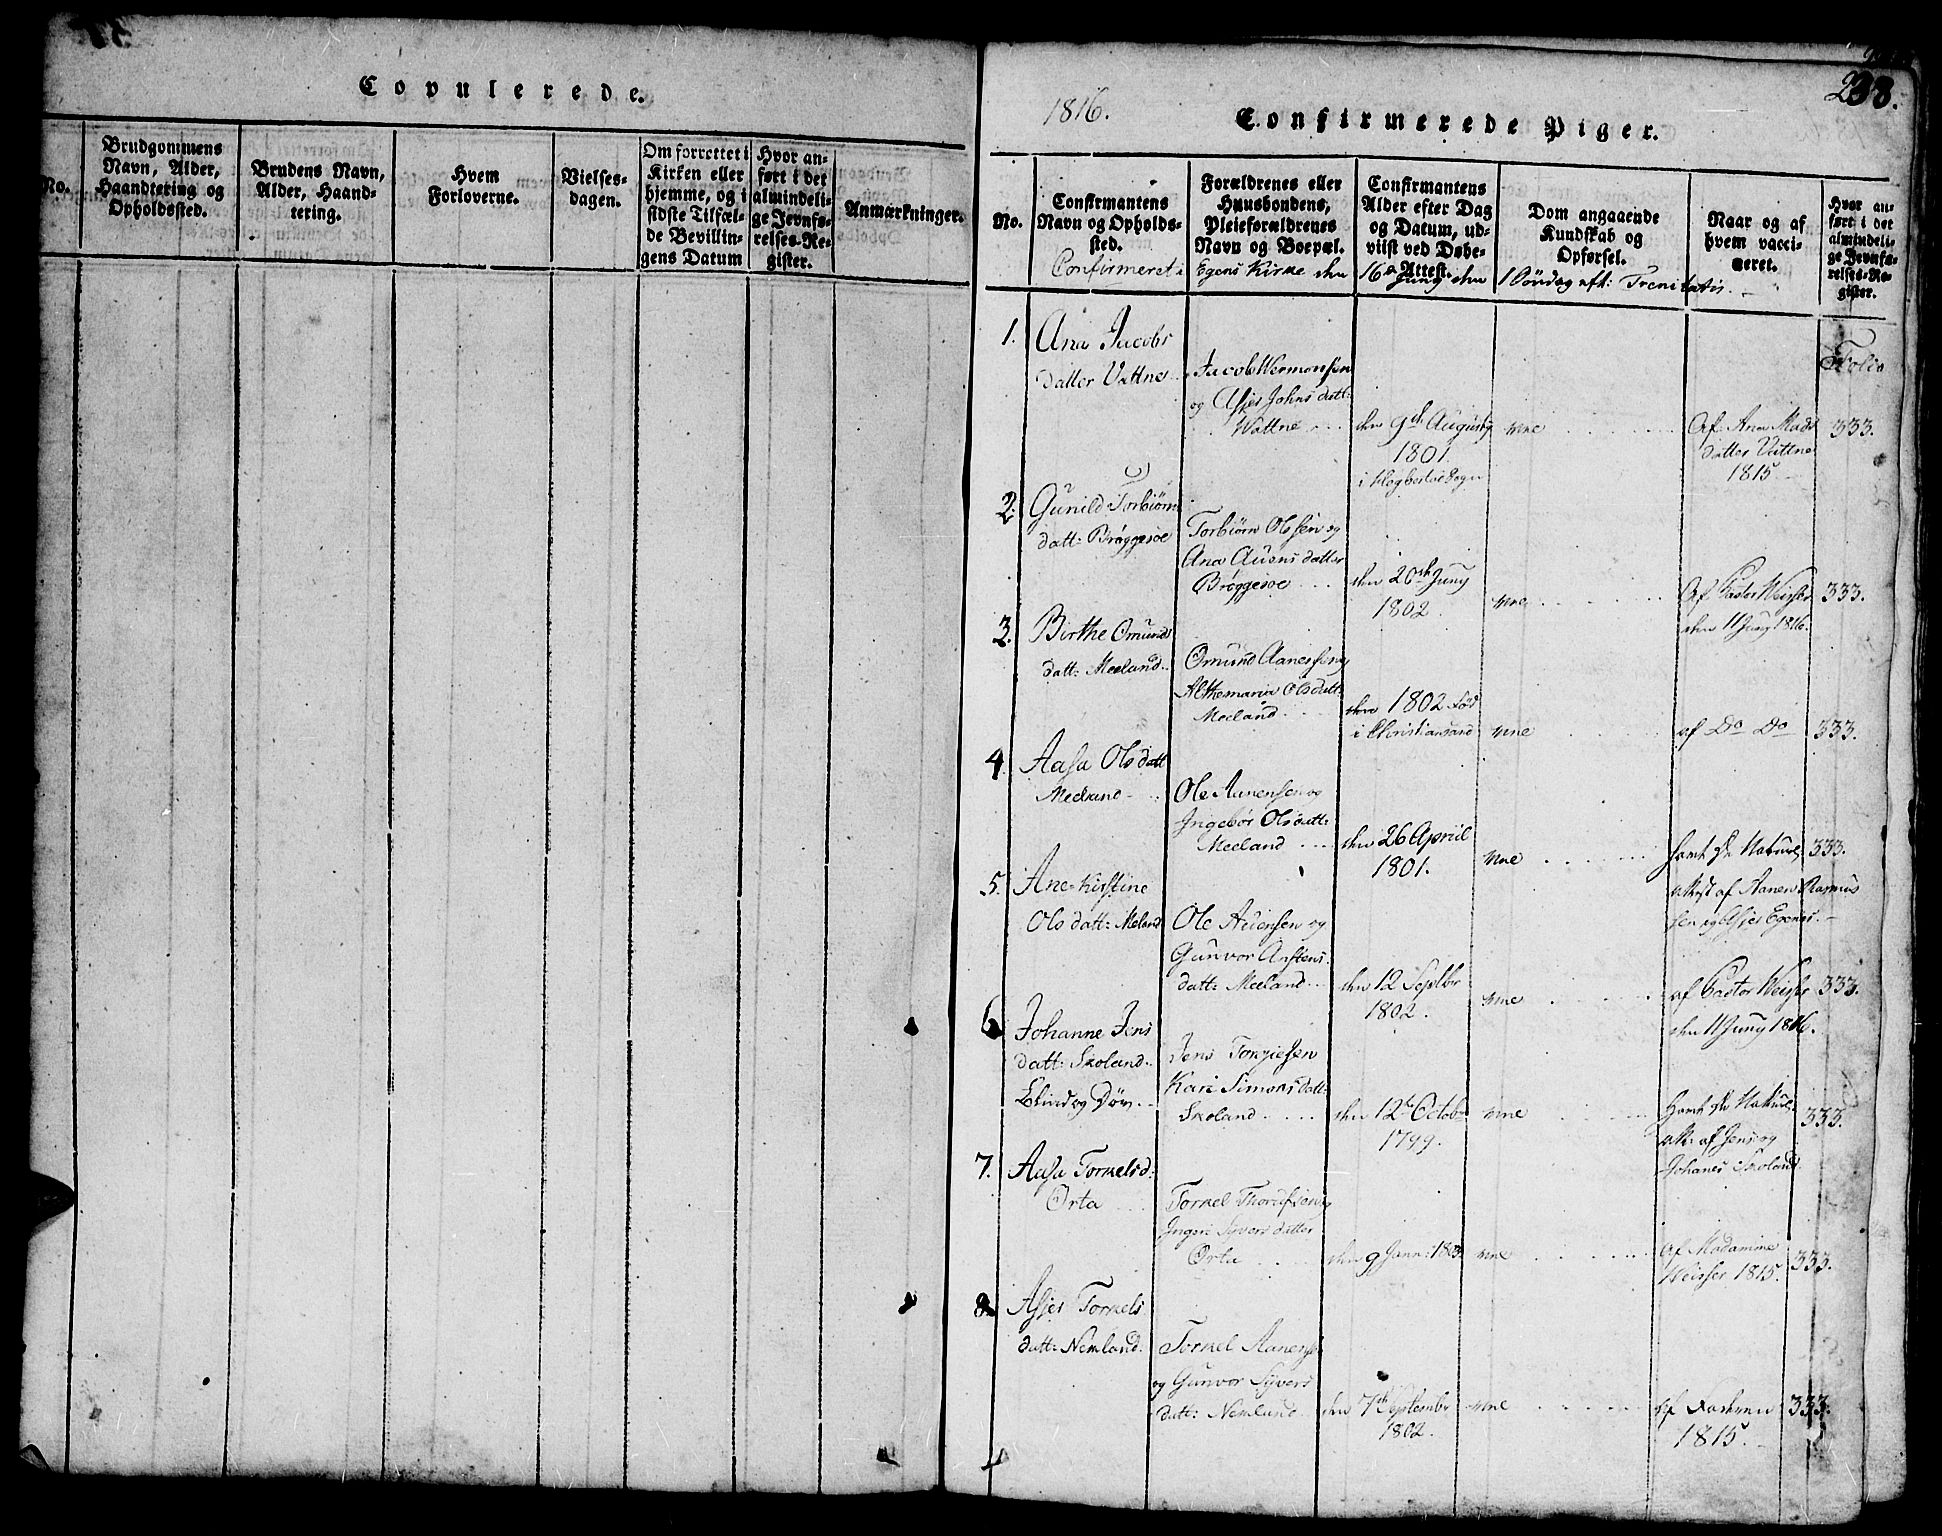 Copulerede.
No.
Brudgommens
Navn, Alder,
Haandtering og
Opholdssted.
Brudens Navn,
Alder, Haand-
tering.
Hvem
Forloverne.
Vielses-
dagen.
Om forrettet i
Kirken eller
hjemme, og i
sidste Tilfæl-
de Bevillin-
gens Datum
Hvor an-
ført i det
almindeli-
ge Jevnfø-
relses-Re-
gister.
Anmærkninger.
238.
1816.
Confirmerede Piger.
No.
Confirmantens
Navn og Opholds-
sted.
Forældrenes eller
Huusbondens,
Pleieforældrenes
Navn og Boepæl.
Confirmantens
Alder efter Dag
og Datum, ud-
viist ved Døbe-
Attest.
Dom angaaende
Kundskab og
Opførsel.
Naar og af
hvem vacci-
neret.
Hvor an-
ført i det
almindeli-
ge Jevnfø-
relses-Re-
gister.
Confirmeret i Egens Kirke den 16de Juny den 1 Søndag eft: Trenitatis.
Folio
1. Ana Jacobs
datter Vattne
Jacob Wermonsen
og Asjer Johns datt:
Wattne
den 9de Augusty
1801.
i Høgbostad Sogn
Af Ana Mads
datter Vattne
1815
333.
2. Gunild Torbiørns
datt: Brøggesoe
Torbiørn Olsen og
Ana Auens datter
Brøggesoe
den 20de Juny
1802.
Af Pastor Weisser
den 11 Juny 1816.
333.
3. Birthe Omunds
datt: Meeland
Omund Aanessen og
Althemaria Olsdatt:
Meeland
den 1802 fød
i Christiansand
af Do Do
333.
4. Aasa Olsdatt
Meeland
Ole Aanensen og
Ingebor Olsdatt:
Meeland
den 26 April
1801.
hav't de Naturl:
Attest af Aanen Rasmus
sen og Asjer Egenes.
333.
5. Ane Kirstine
Ols datt: Meland
Ole Adensen og
Gunvor Arstens
datt: Meeland
den 12 Septbr
1802.
af Pastor Weisser
den 11 Juny 1816.
333.
6. Johanne Jens
datt: Skoland
Blind og Døv
Jens Torgiesen
Kari Simons datt:
Skoland
den 12te Octobr
1799.
hav't de Naturl:
att: af Jens og
Johanes Skoland
333.
7. Aasa Torkelsd:
Orta
Torkel Thordsen og
Inger Syvers datter
Orta
den 9 Jann: 1803
af Madamme
Weisser 1815.
333.
8. Asjer Torkels
datt: Nemland
Torkel Aanensen
og Gunvor Syvers
datt: Nemland
den 7de September
1802.
af Faderen
1815.
333.